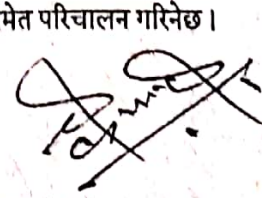 मेत परिचालन गरिनेछ।